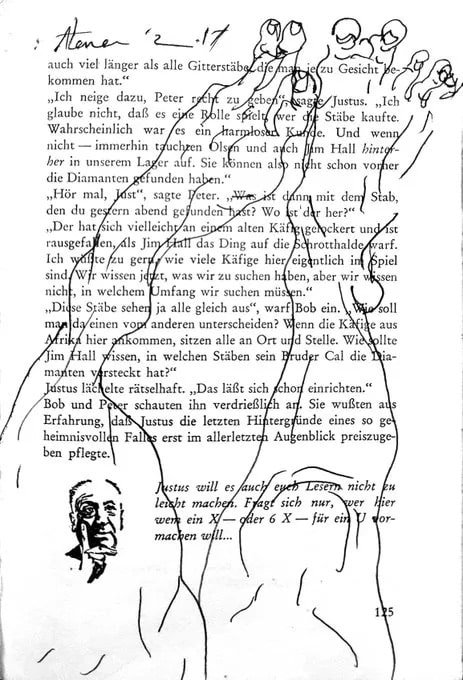 auch viel länger als alle Gitterstäbe, die man je zu Gesicht be-
kommen hat.“
„Ich neige dazu, Peter recht zu geben“, sagte Justus. „Ich
glaube nicht, daß es eine Rolle spielt, wer die Stäbe kaufte.
Wahrscheinlich war es ein harmloser Kunde. Und wenn
nicht — immerhin tauchten Olsen und auch Jim Hall hinter-
her in unserem Lager auf. Sie können also nicht schon vorher
die Diamanten gefunden haben.“
„Hör mal, Just“, sagte Peter. „Was ist dann mit dem Stab,
den du gestern abend gefunden hast? Wo ist der her?“
„Der hat sich vielleicht an einem alten Käfig gelockert und ist
rausgefallen, als Jim Hall das Ding auf die Schrotthalde warf.
Ich wüßte zu gern, wie viele Käfige hier eigentlich im Spiel
sind. Wir wissen jetzt, was wir zu suchen haben, aber wir wissen
nicht, in welchem Umfang wir suchen müssen.“
„Diese Stäbe sehen ja alle gleich aus“, warf Bob ein. „Wie soll
man da einen vom anderen unterscheiden? Wenn die Käfige aus
Afrika hier ankommen, sitzen alle an Ort und Stelle. Wie sollte
Jim Hall wissen, in welchen Stäben sein Bruder Cal die Dia-
manten versteckt hat?“
Justus lächelte rätselhaft. „Das läßt sich schon einrichten.“
Bob und Peter schauten ihn verdrießlich an. Sie wußten aus
Erfahrung, daß Justus die letzten Hintergründe eines so ge-
heimnisvollen Falles erst im allerletzten Augenblick preiszuge-
ben pflegte.
Justus will es auch euch Lesern nicht zu
leicht machen. Fragt sich nur, wer hier
wem ein X — oder 6 X — für ein U vor-
machen will...
125